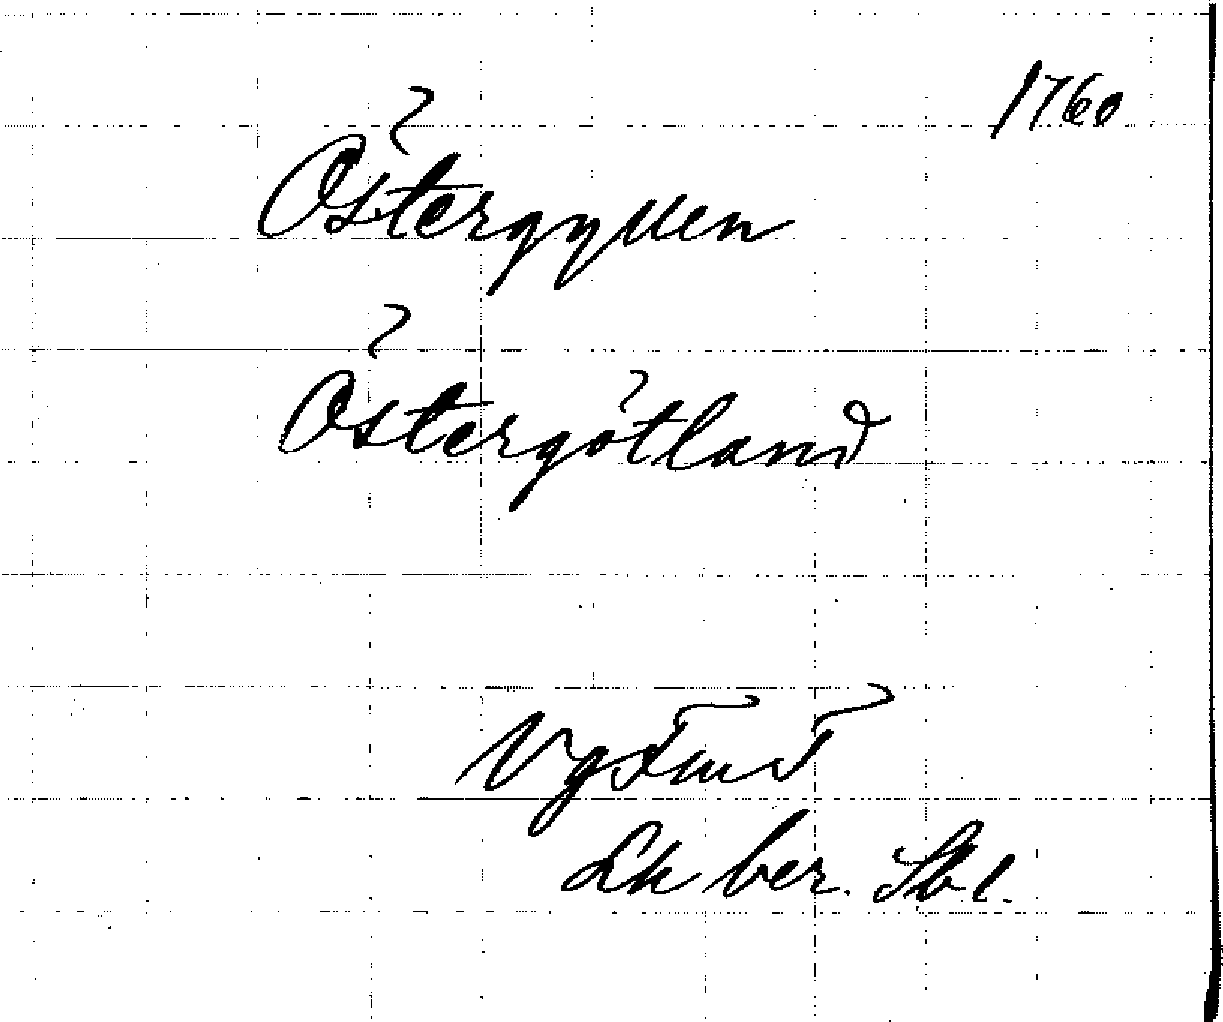 1760
Östergyllen
Östergötland
Lk ber. Sbl.